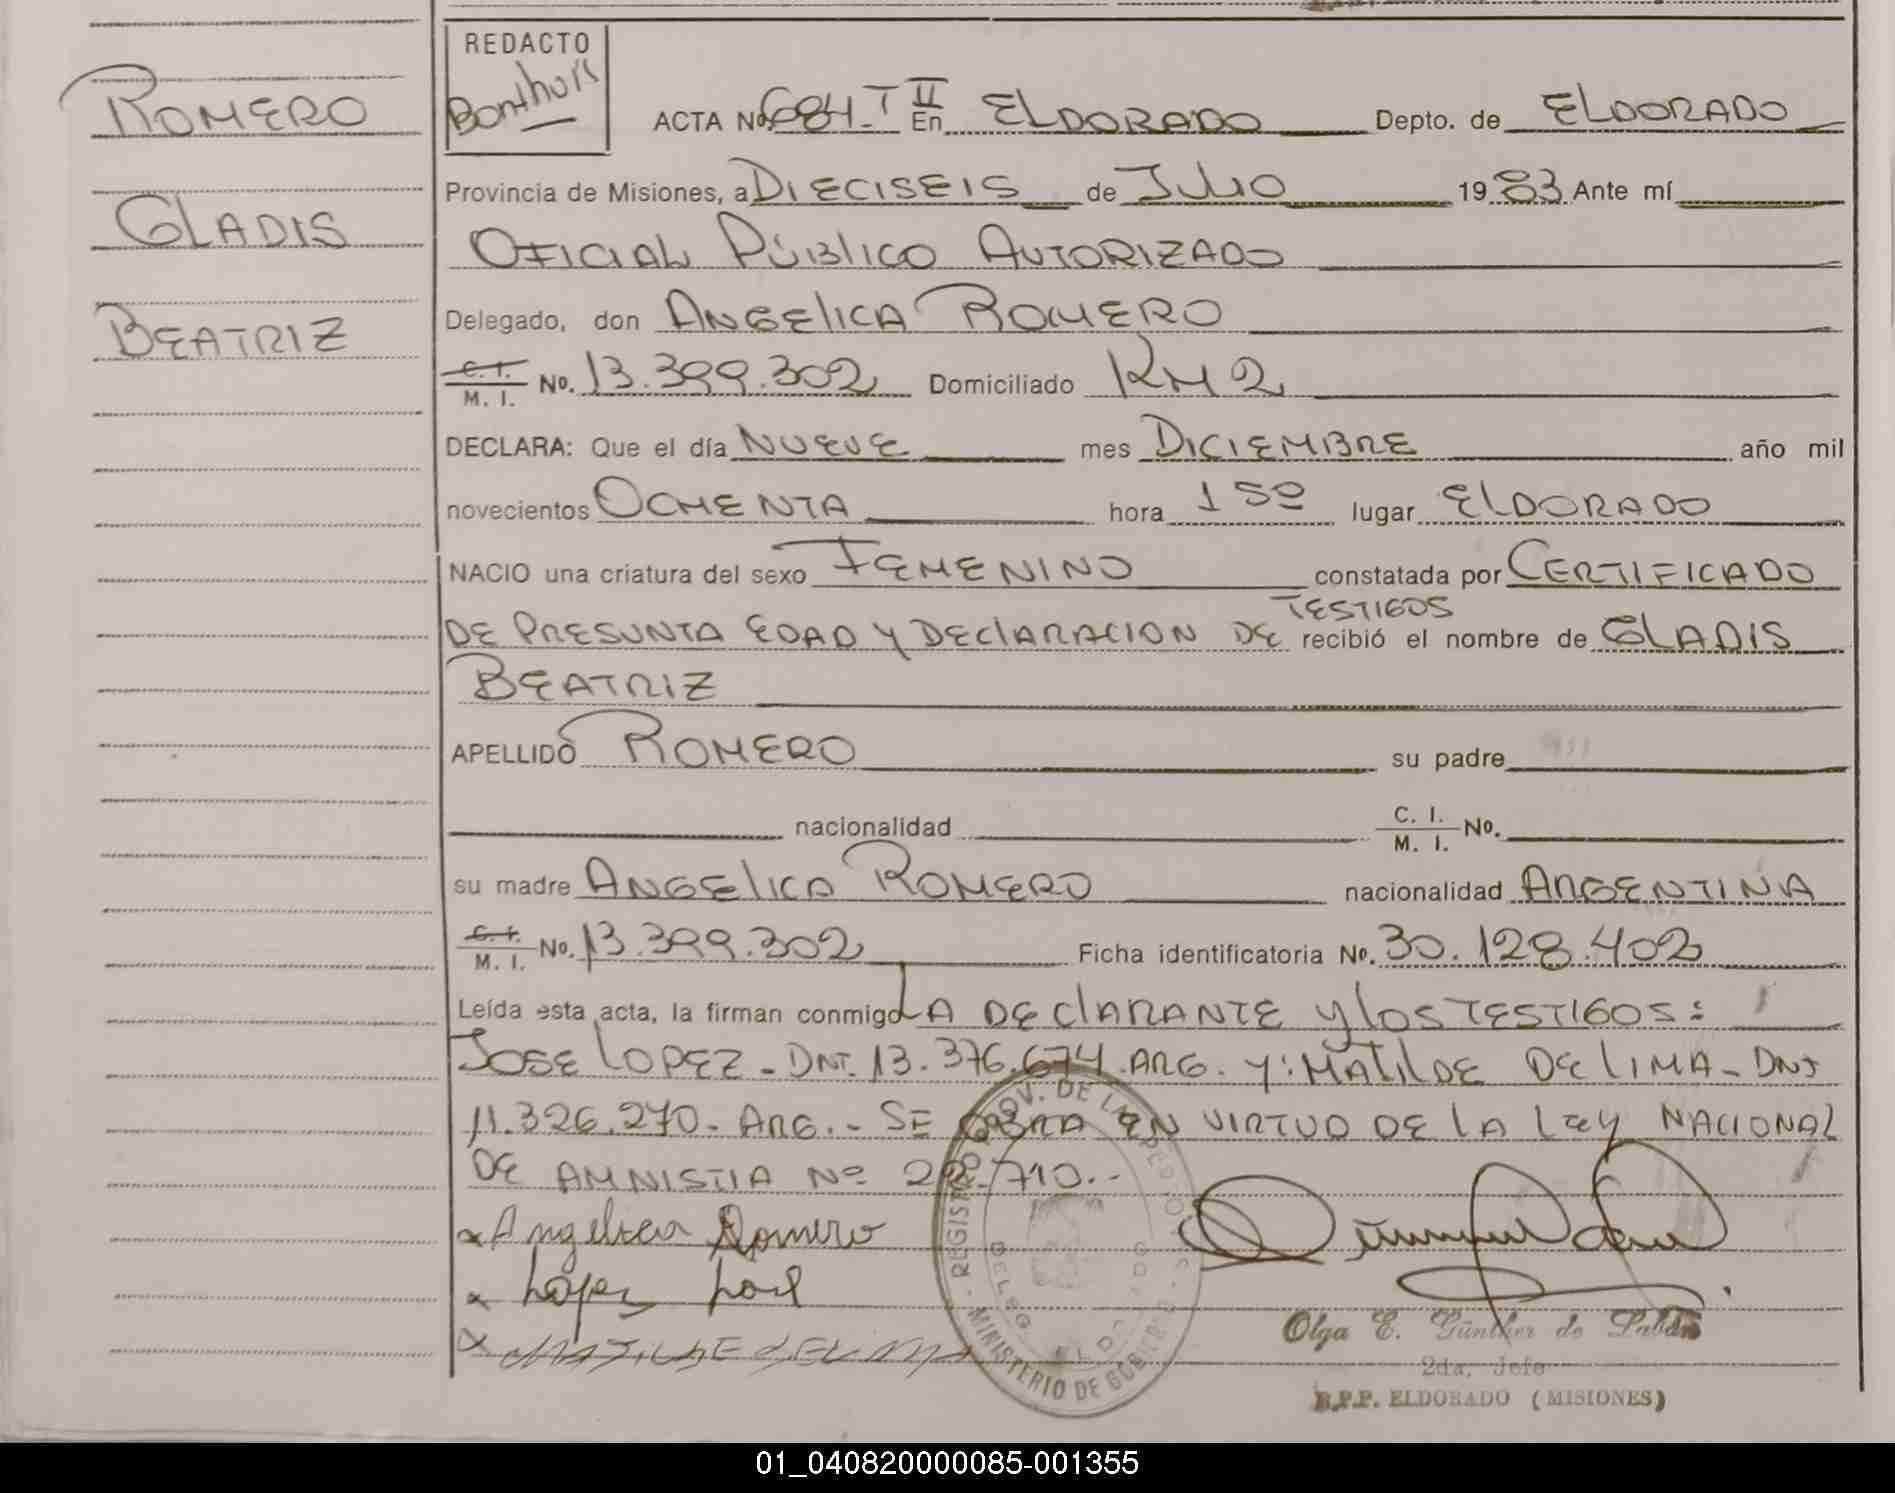 ROMERO
GLADIS
BEATRIZ
REDACTO
Bonthuis
ACTA No. 684 T II En ELDORADO Depto. de ELDORADO
Provincia de Misiones, a DIECISEIS de JULIO 1983 Ante mí
OFICIAL PÚBLICO AUTORIZADO
Delegado, don ANGELICA ROMERO
C. I. M. I. No. 13.399.302 Domiciliado KM 2
DECLARA: Que el día NUEVE mes DICIEMBRE año mil
novecientos OCHENTA hora 15º lugar ELDORADO
NACIO una criatura del sexo FEMENINO constatada por CERTIFICADO
DE PRESUNTA EDAD Y DECLARACION DE TESTIGOS recibió el nombre de GLADIS
BEATRIZ
APELLIDO ROMERO su padre
nacionalidad C. I. M. I. No.
su madre ANGELICA ROMERO nacionalidad ARGENTINA
C. I. M. I. No. 13.399.302 Ficha identificatoria No. 30.128.402
Leída esta acta, la firman conmigo LA DECLARANTE Y LOS TESTIGOS:
JOSE LOPEZ - DNI. 13.376.674 ARG. Y: MATILDE DE LIMA - DNI
11.326.270 - ARG. - SE LABRA EN VIRTUD DE LA LEY NACIONAL
DE AMNISTIA Nº 22.710.-
x Angelica Romero
x Lopez José
x MATILDE DE LIMA
REGISTRO PROV. DE LAS PERSONAS - MINISTERIO DE GOBIERNO
Olga E. Günther de
2da. Jefe
R.P.P. ELDORADO (MISIONES)
01_040820000085-001355